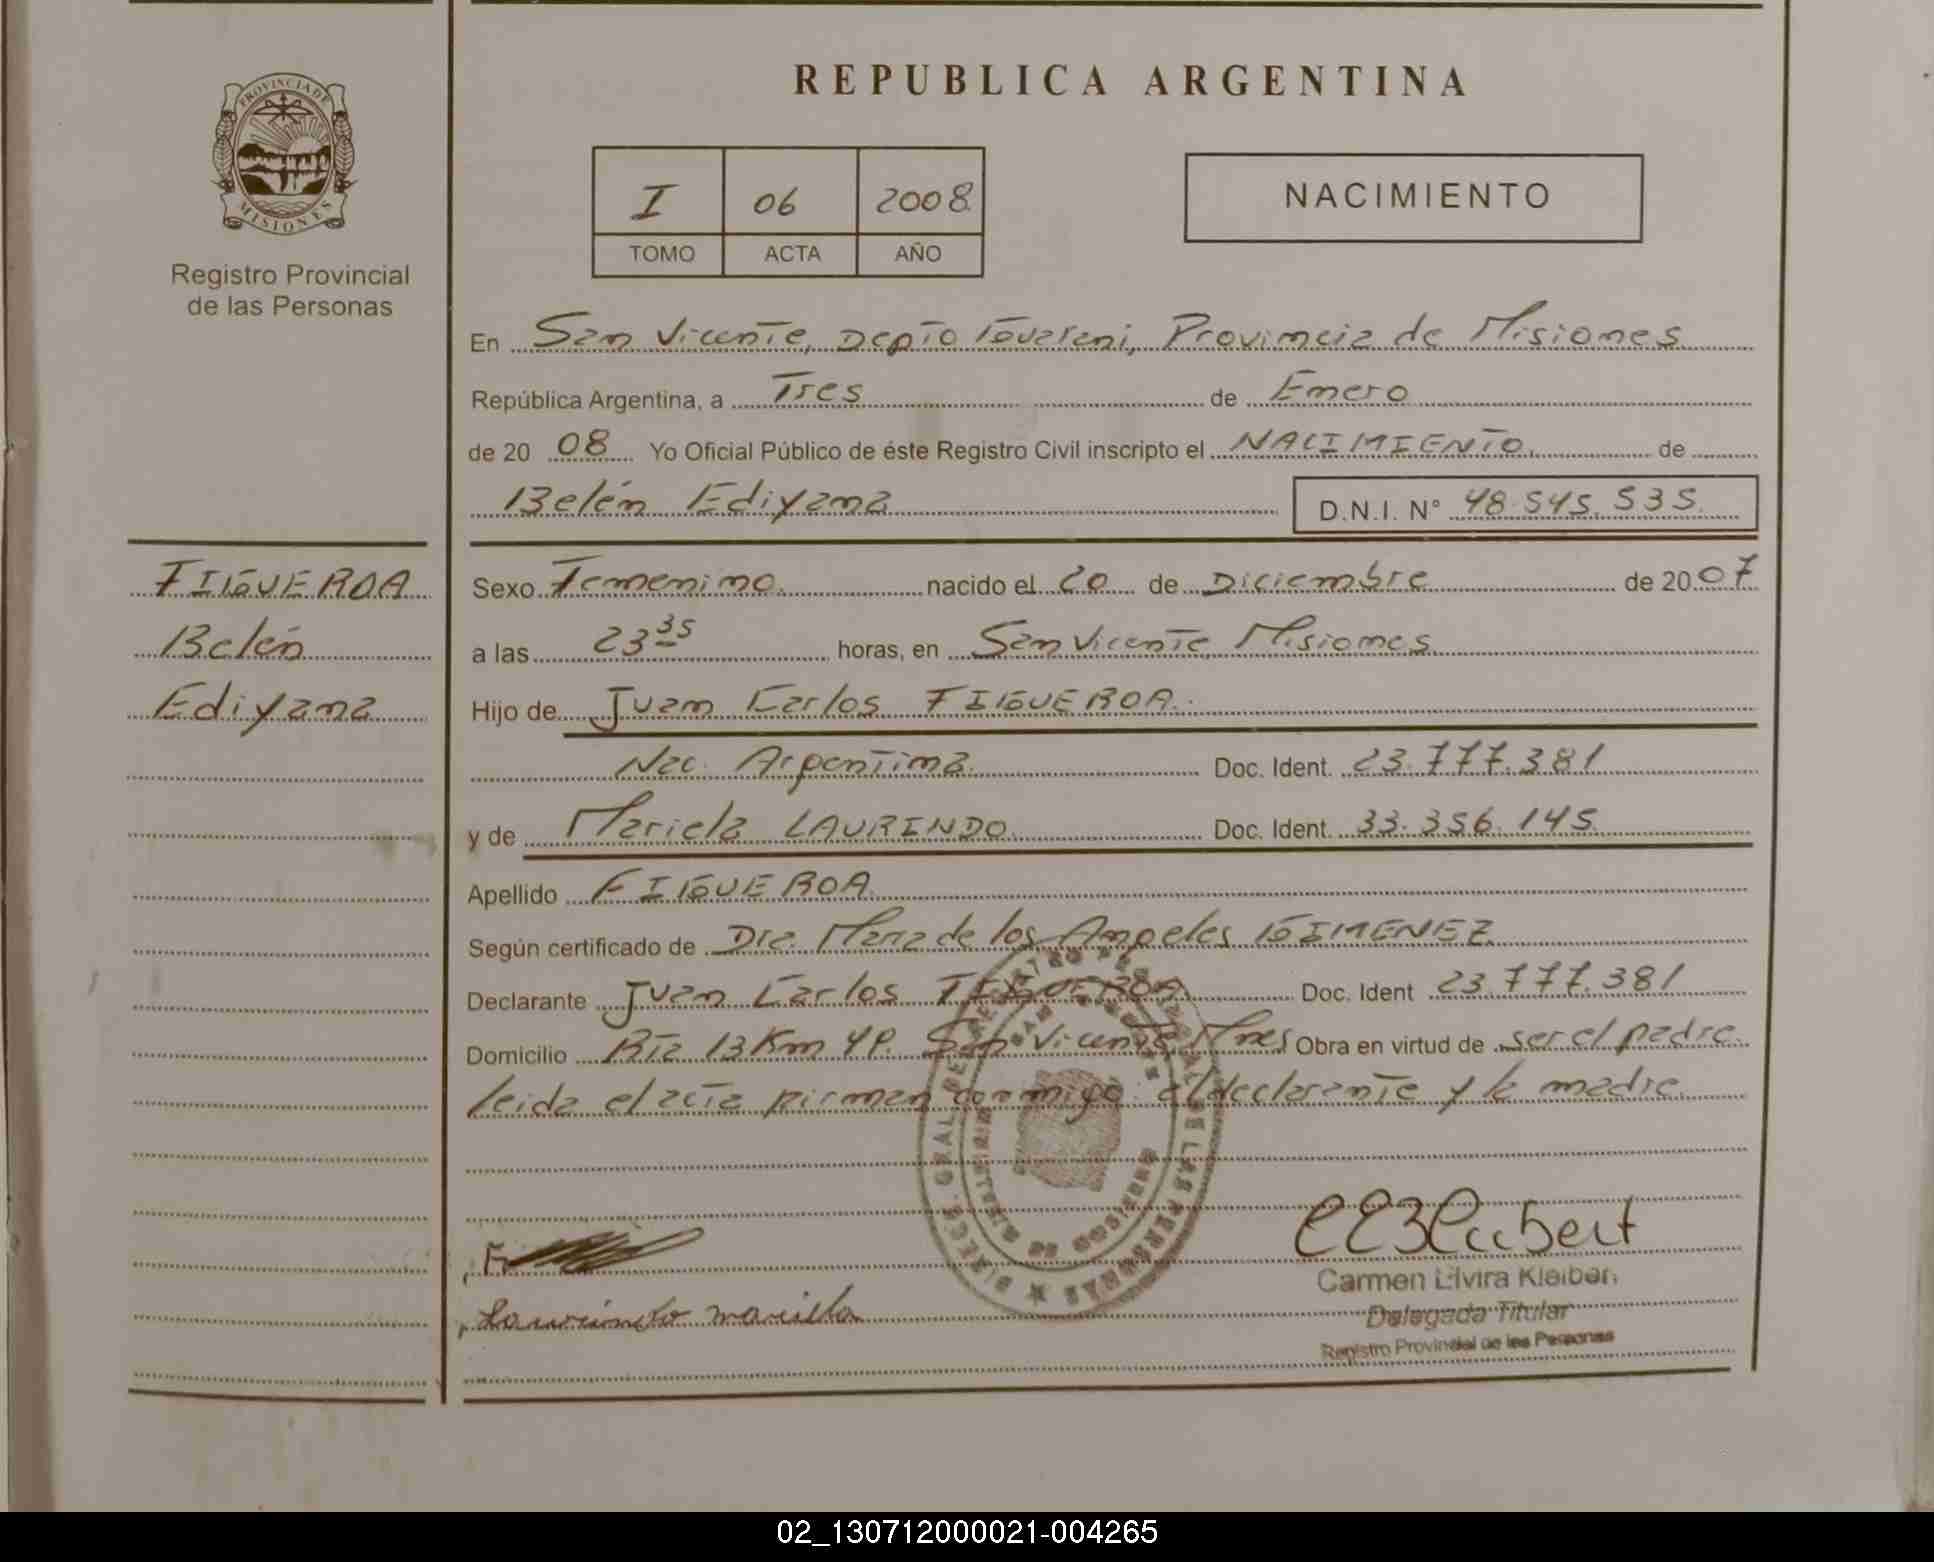 REPUBLICA ARGENTINA
PROVINCIA DE
MISIONES
Registro Provincial
de las Personas
I 06 2008
TOMO ACTA AÑO
NACIMIENTO
En San Vicente, Depto Guarani, Provincia de Misiones
República Argentina, a Tres de Enero
de 20 08 Yo Oficial Público de éste Registro Civil inscripto el NACIMIENTO de
Belén Ediyana D.N.I. N° 48.545.535
FIGUEROA
Belén
Ediyana
Sexo Femenino nacido el 20 de Diciembre de 20 07
a las 23 35 horas, en San Vicente Misiones
Hijo de Juan Carlos FIGUEROA.
Nac. Argentina Doc. Ident. 23.777.381
y de Mariela LAURINDO Doc. Ident. 33.356.145
Apellido FIGUEROA
Según certificado de Dra. Maria de los Angeles GIMENEZ
Declarante Juan Carlos FIGUEROA Doc. Ident 23.777.381
Domicilio Rta 13 Km 4P. San Vicente Mnes Obra en virtud de ser el padre
leida el acta firman conmigo: el declarante y la madre
Laurindo mariela
Carmen Elvira Kleiber
Delegada Titular
Registro Provincial de las Personas
02_130712000021-004265